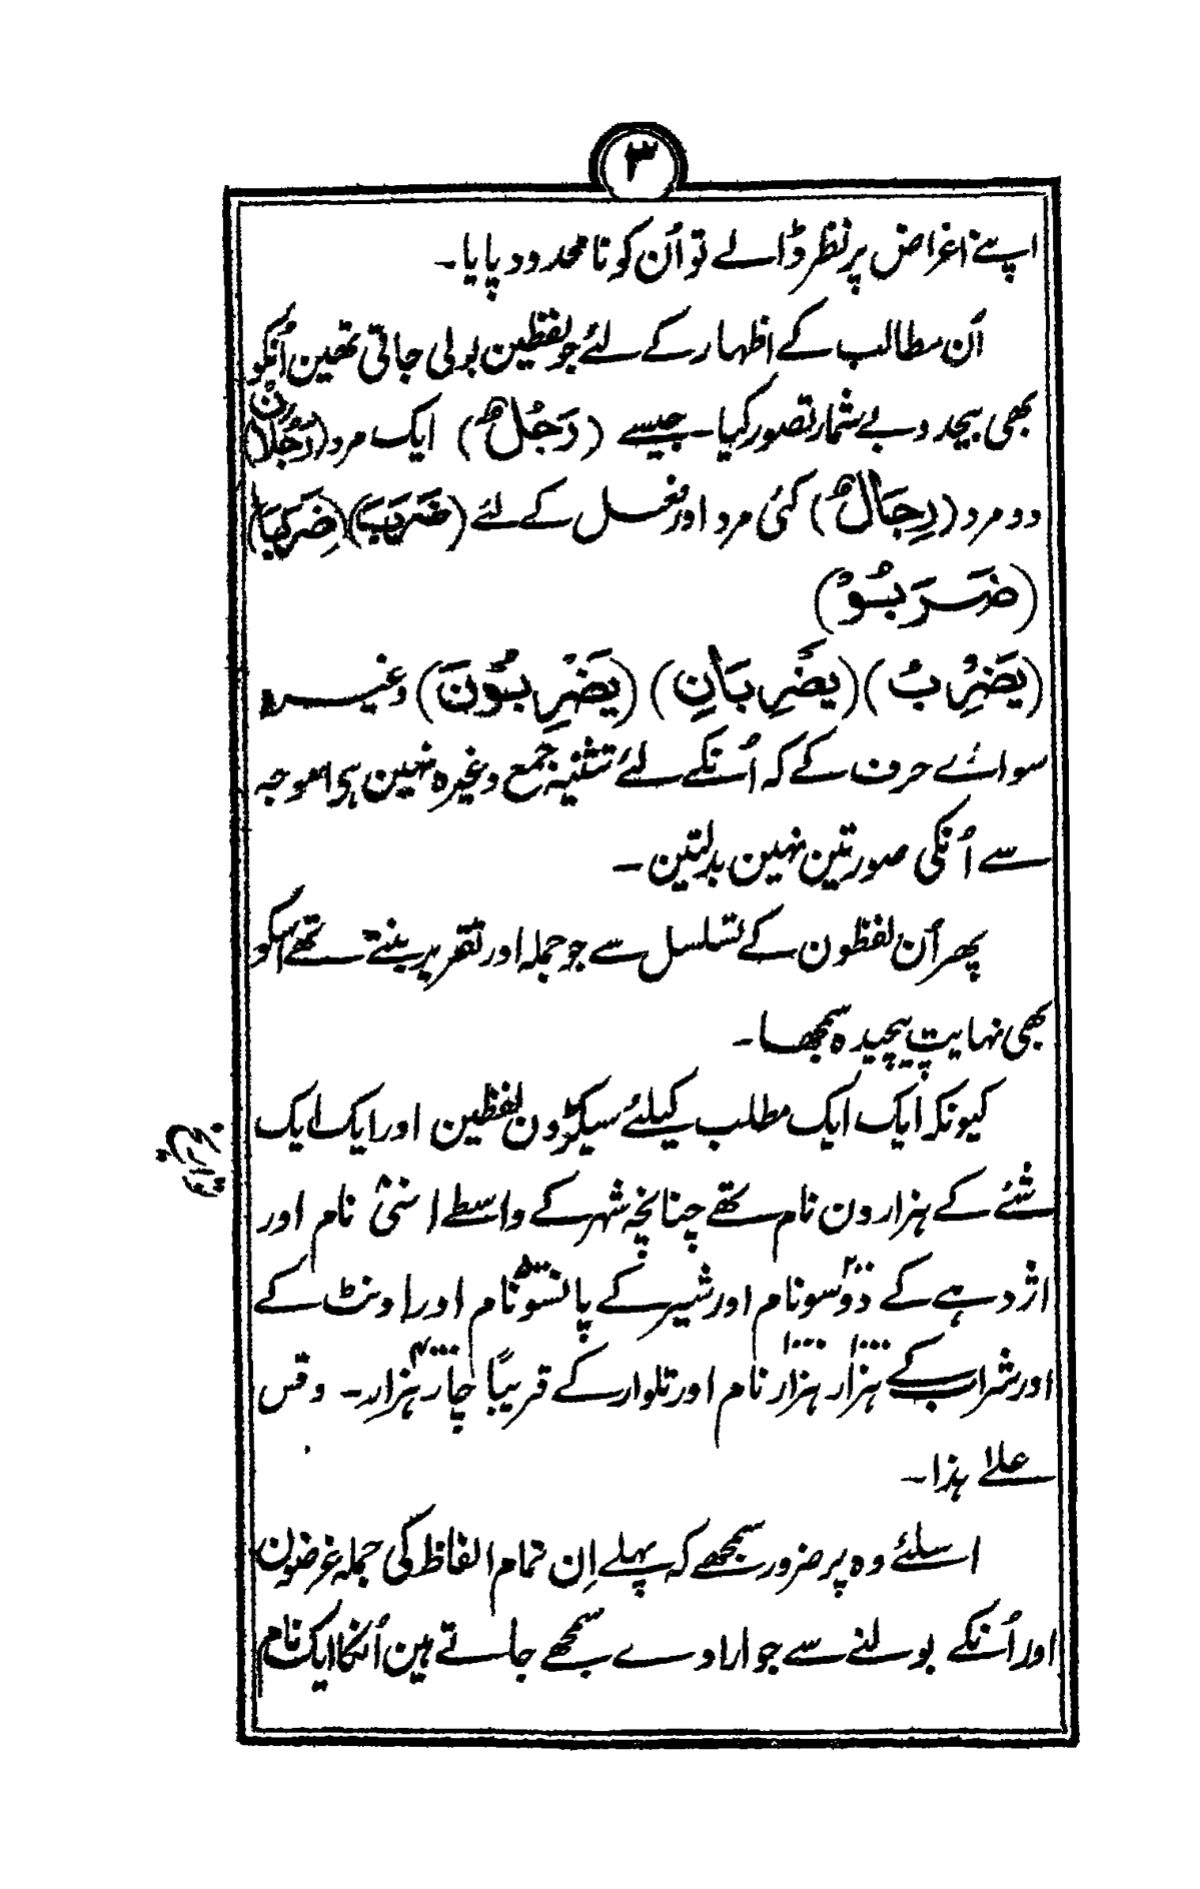 ۳
اپنے اغراض پر نظر ڈالے تو اُن کو نامحدود پایا۔
اُن مطالب کے اظہار کے لئے جو لفظین بولی جاتی تھین اُنکو
بھی بیحد و بے شمار تصور کیا۔ جیسے (رَجُلٌ) ایک مرد (رَجُلَانْ)
دو مرد (رِجَالٌ) کئی مرد اور فعل کے لئے (ضَرَبَ) (ضَرَبَا)
(ضَرَبُوْ)
(یَضْرِبُ) (یَضْرِبَانِ) (یَضْرِبُوْنَ) وغیرہ
سوائے حرف کے کہ اُنکے لئے تثنیہ جمع وغیرہ نہین ہی اسوجہ
سے اُنکی صورتین نہین بدلتین۔
پھر اُن لفظون کے تسلسل سے جو جملہ اور تقریر بنتے تھے اسکو
بھی نہایت پیچیدہ سمجھا۔
کیونکہ ایک ایک مطلب کیلئے سیکڑون لفظین اور ایک ایک
شئے کے ہزارون نام تھے چنانچہ شہر کے واسطے اسّی ۸۰ نام اور
اژدہے کے دوسو ۲۰۰ نام اور شیر کے پانسو ۵۰۰ نام اور اونٹ کے
اور شراب کے ہزار ۱۰۰۰ ہزار ۱۰۰۰ نام اور تلوار کے قریبًا چار ہزار ۴۰۰۰۔ وقس
علےٰ ہذا۔
اسلئے وہ پر ضرور سمجھے کہ پہلے اِن تمام الفاظ کی جملہ غرضون
اور اُنکے بولنے سے جو ارادے سمجھے جاتے ہین اُنکا ایک نام